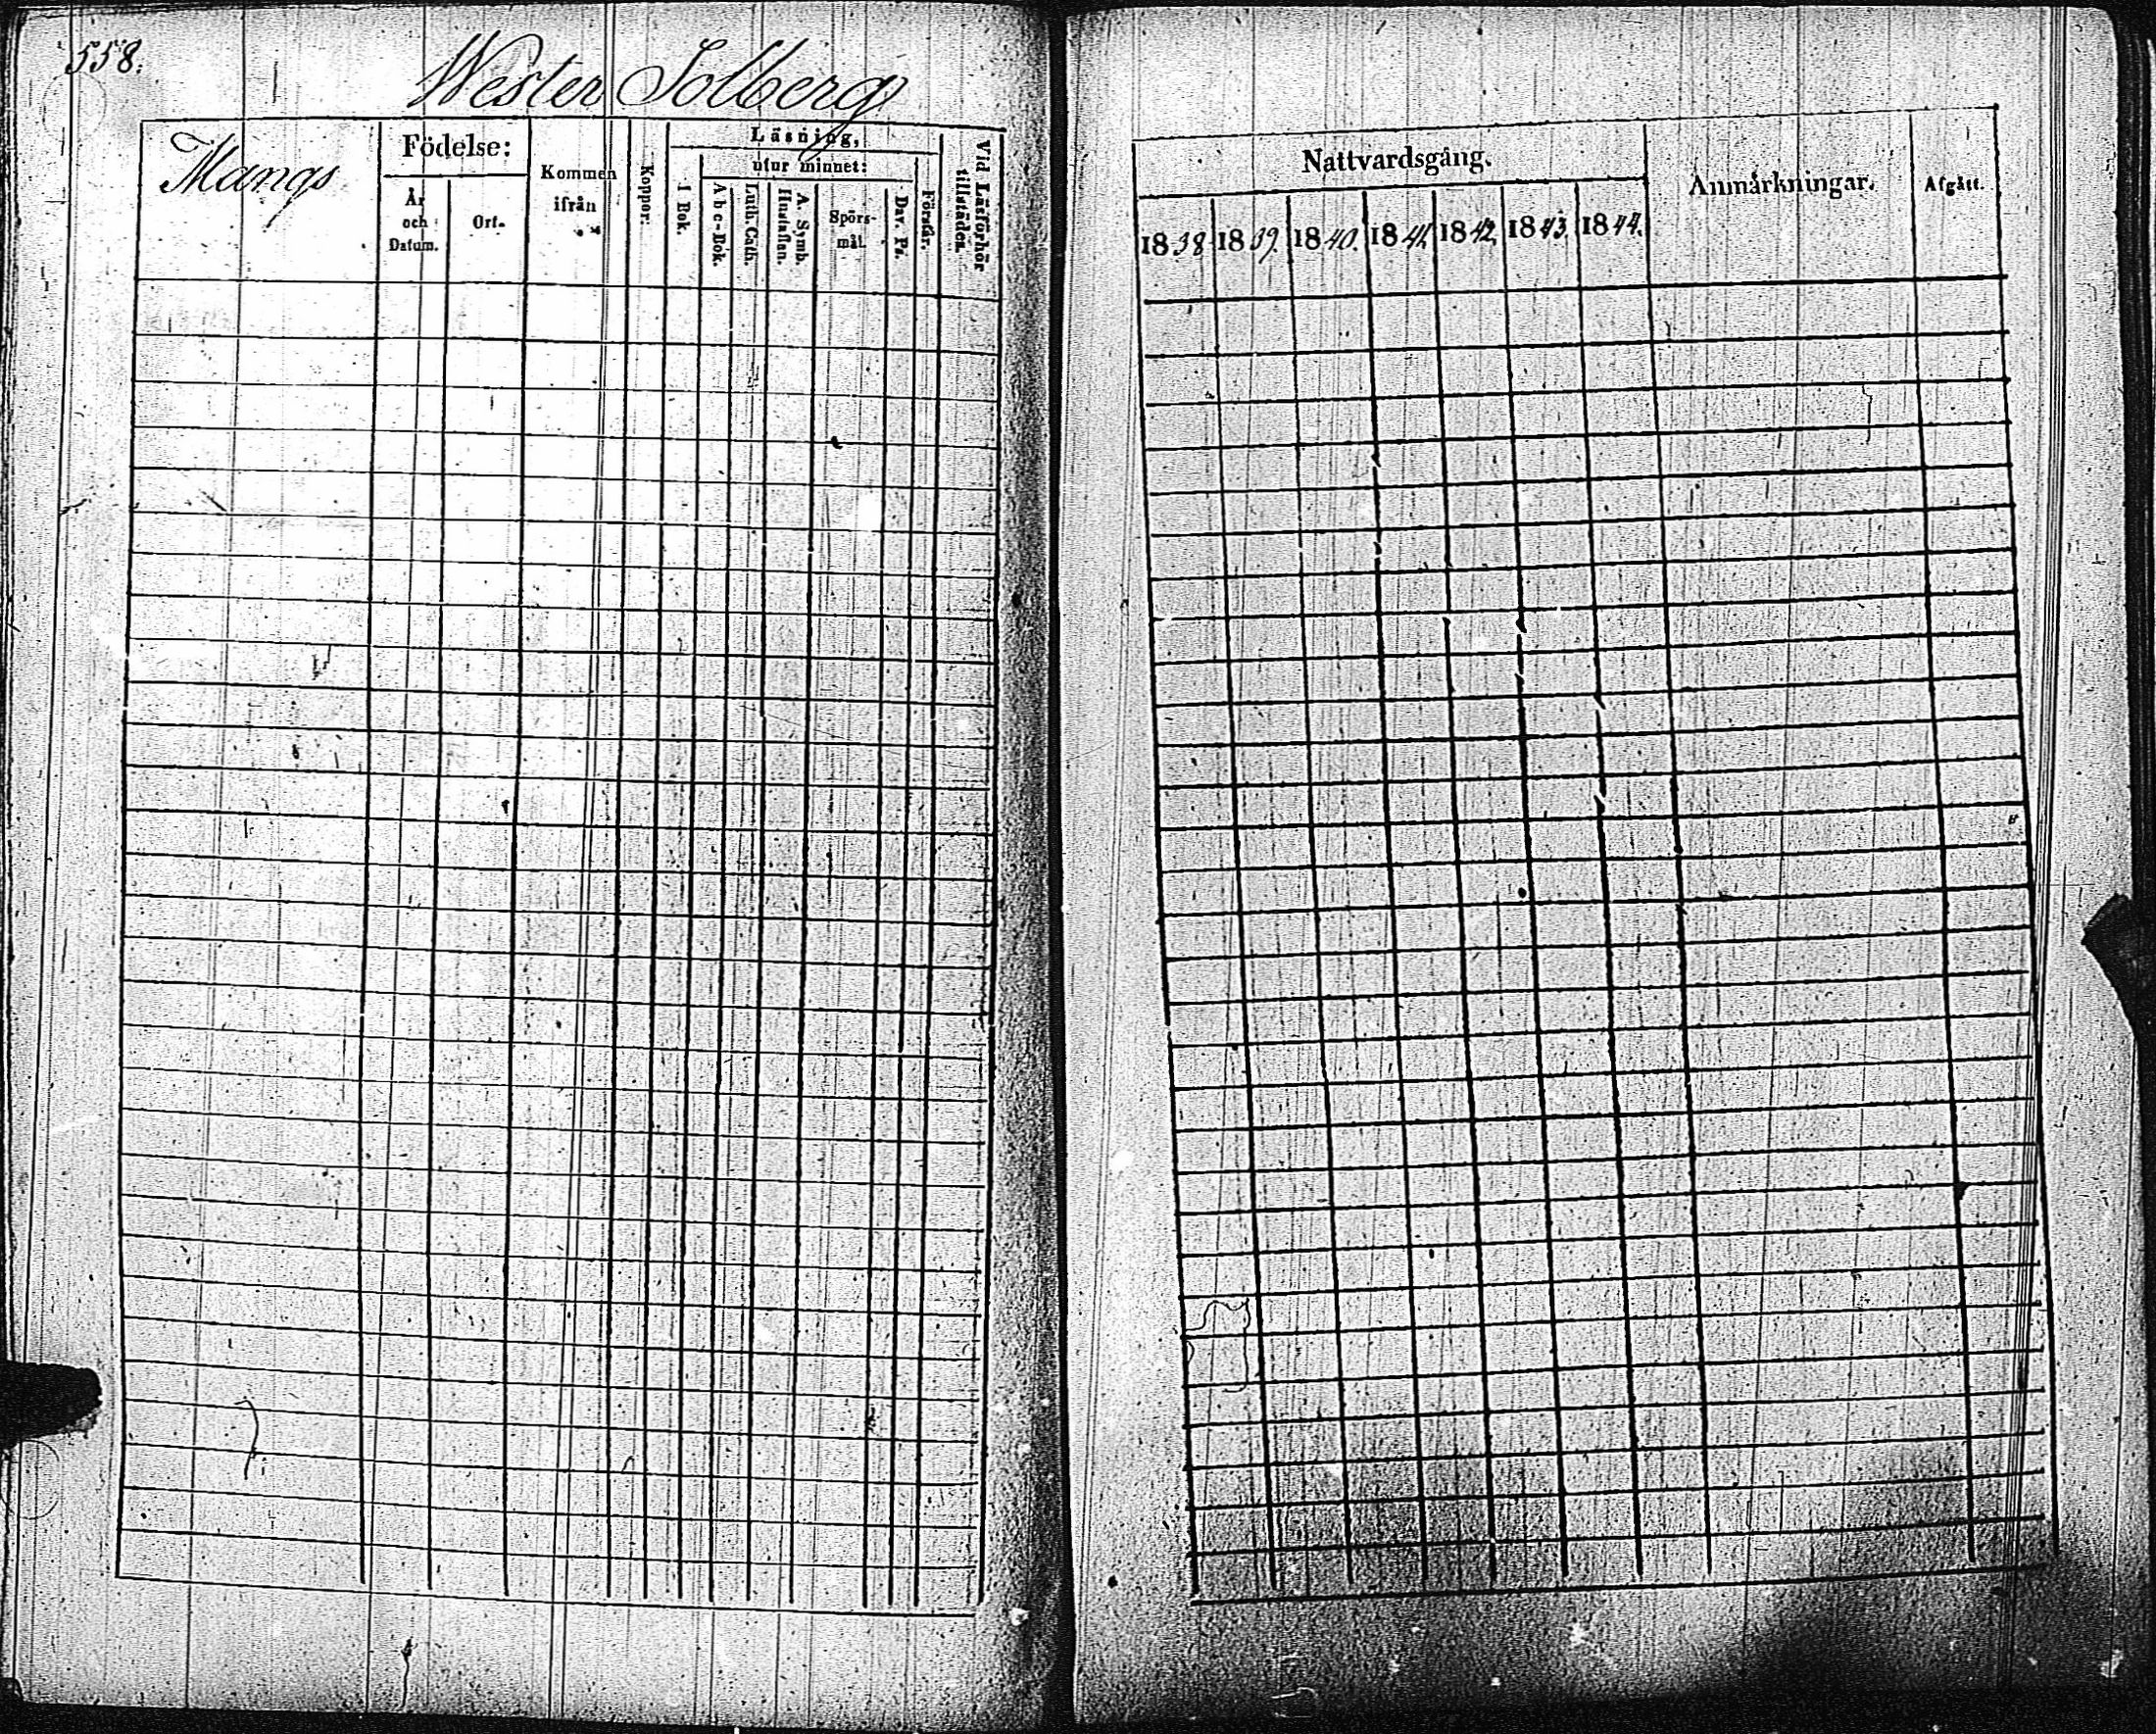 558.
Wester Solberg
Mangs
Födelse:
År och Datum.
Ort.
Kommen ifrån
Koppor.
Läsning,
I Bok.
utur minnet:
A b c-Bok.
Luth. Cath.
A. Symb. Hustaflan.
Spörs-
mål.
Dav. Ps.
Förstår.
Vid Läsförhör tillstädes.
Nattvardsgång.
1838 1839. 1840. 1841. 1842. 1843. 1844.
Anmärkningar.
Afgått.